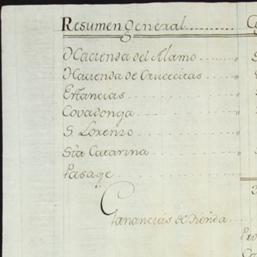 Resumen general
Hacienda del Alamo
Hacienda de Crucecitas
Estancias
Covadonga
S. Lorenzo
Sta Catarina
Pasage
Ganancias de Tienda